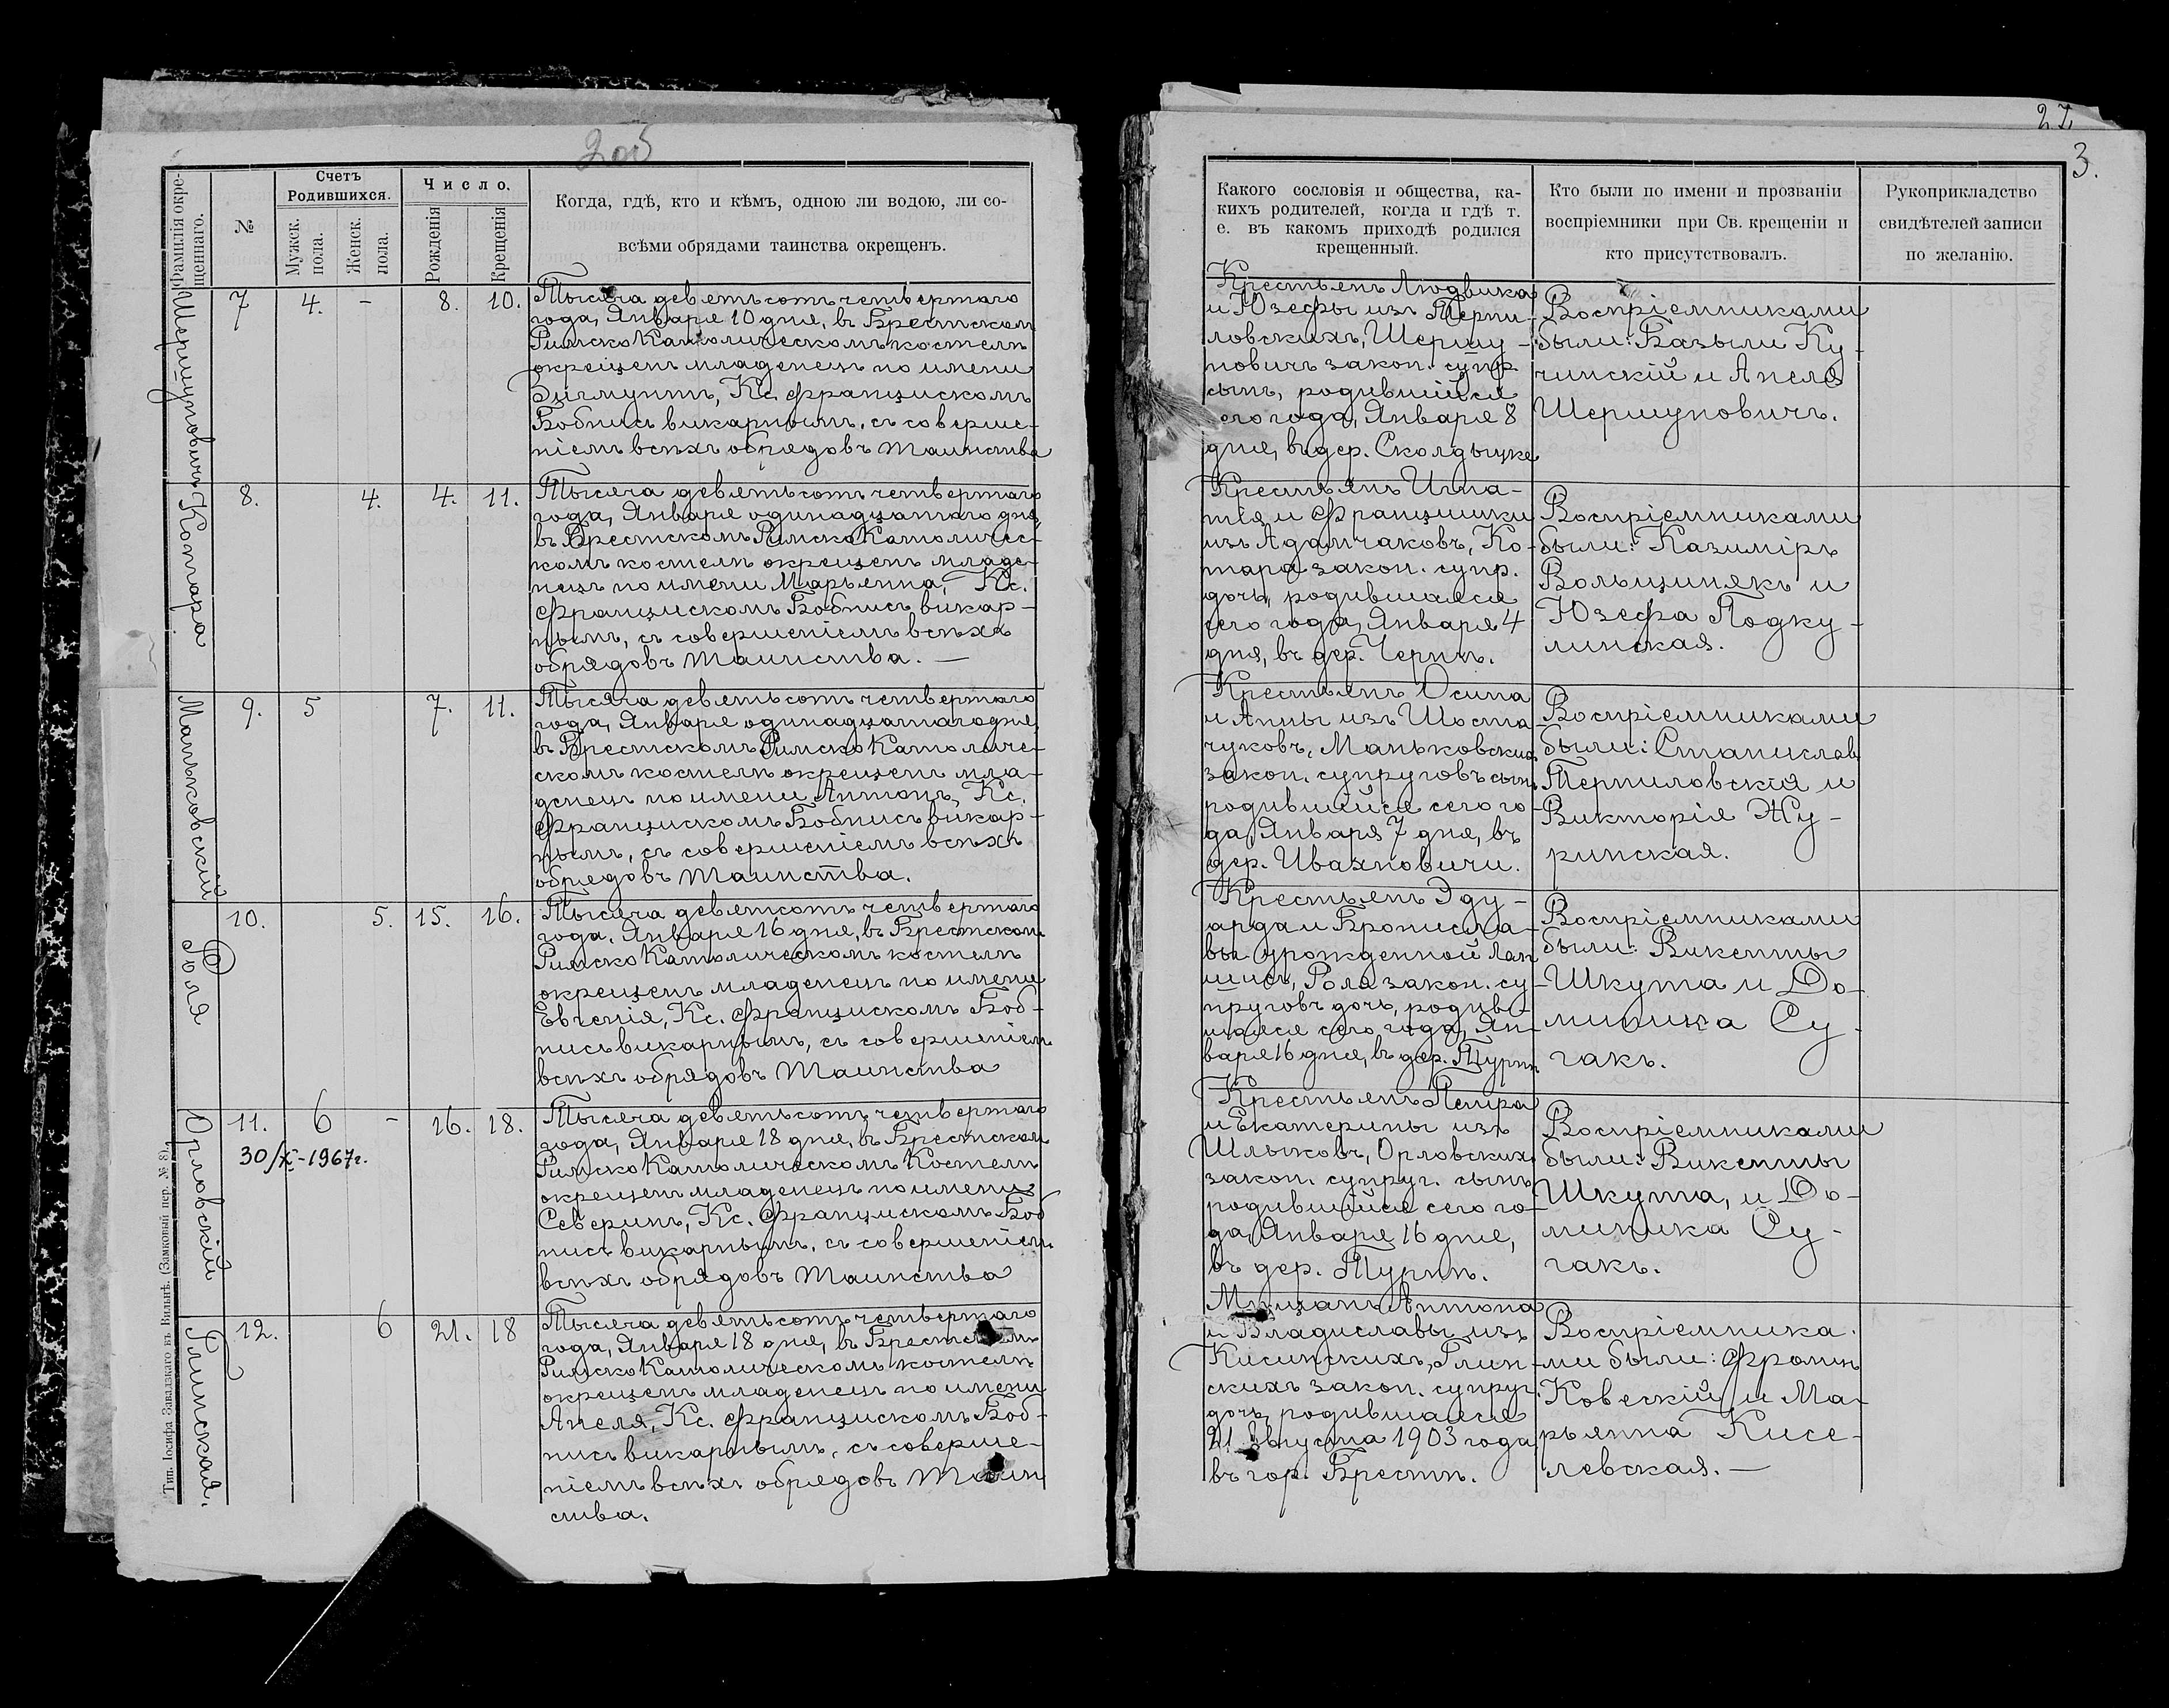 2об
Фамилія окре-
щеннаго.
№
Счетъ
Родившихся.
Мужск.
пола.
Женск.
пола.
Число.
Рожденія
Крещенія
Когда, гдѣ, кто и кѣмъ, одною ли водою, ли со-
всѣми обрядами таинства окрещенъ.
Шершуновичъ
7
4.
-
8.
10.
Тысяча девятьсотъ четвертаго
года, Января 10 дня, въ Брестскомъ
Римско Католическомъ костелѣ
окрещенъ младенецъ по имени
Зигмунтъ, Кс. Францискомъ
Бобнисъ викарнымъ, съ соверше-
ніемъ всѣхъ обрядовъ Таинства
Котара
8.
4.
4.
11.
Тысяча девятьсотъ четвертаго
года, Января одинадцатаго дня,
въ Брестскомъ Римско Католичес-
комъ костелѣ окрещенъ младе-
нецъ по имени Марьянна, Кс.
Францискомъ Бобнисъ викар-
нымъ, съ совершеніемъ всѣхъ
обрядовъ Таинства. —
Маньковскій
9.
5
7.
11.
Тысяча девятьсотъ четвертаго
года, Января одинадцатаго дня,
въ Брестскомъ Римско Католиче-
скомъ костелѣ окрещенъ мла-
денецъ по имени Антонъ, Кс.
Францискомъ Бобнисъ викар-
нымъ, съ совершеніемъ всѣхъ
обрядовъ Таинства.
Роля
10.
5.
15.
16.
Тысяча девятсотъ четвертаго
года, Января 16 дня, въ Брестскомъ
Римско Католическомъ костелѣ
окрещенъ младенецъ по имени
Евгенія, Кс. Францискомъ Боб-
нисъ викарнымъ, съ совершеніемъ
всѣхъ обрядовъ Таинства
Орловскій
11.
6
-
16.
18.
30/X-1967г.
Тысяча девятьсотъ четвертаго
года, Января 18 дня, въ Брестскомъ
Римско Католическомъ Костелѣ
окрещенъ младенецъ по имени
Северинъ, Кс. Францискомъ Боб
нисъ викарнымъ, съ совершеніемъ
всѣхъ обрядовъ Таинства
Глинская.
12.
6
21.
18
Тысяча девятьсотъ четвертаго
года, Января 18 дня, въ Брестскомъ
Римско Католическомъ костелѣ
окрещенъ младенецъ по имени
Анеля, Кс. Францискомъ Боб-
нисъ викарнымъ, съ соверше-
ніемъ всѣхъ обрядовъ Таин
ства.
Тип. Іосифа Завадзкаго въ Вильнѣ. (Замковый пер. № 8).
3.
Какого сословія и общества, ка-
кихъ родителей, когда и гдѣ т.
е. въ какомъ приходѣ родился
крещенный.
Кто были по имени и прозваніи
воспріемники при Св. крещеніи и
кто присутствовалъ.
Рукоприкладство
свидѣтелей записи
по желанію.
Крестьянъ Людвика
и Юзефы изъ Терпи-
ловскихъ, Шершу-
новичъ закон. супр.
сынъ, родившійся
сего года, Января 8
дня, въ дер. Сколдычке
Воспріемниками
были: Базыли Ку-
чинскій и Анеля
Шершуновичъ.
Крестьянъ Игна-
тія и Францишки
изъ Адамчаковъ, Ко-
тара закон. супр.
дочь, родившаяся
сего года, Января 4
дня, въ дер. Чернѣ.
Воспріемниками
были: Казиміръ
Вольщинякъ и
Юзефа Подку-
линская.
Крестьянъ Осипа
и Анны изъ Шоста-
чуковъ, Маньковскихъ
закон. супруговъ сынъ,
родившійся сего го-
да, Января 7 дня, въ
дер. Ивахновичи.
Воспріемниками
были: Станиславъ
Терпиловскій и
Викторія Жу-
ринская.
Крестьянъ Эду-
арда и Брониста-
вы урожденной Лап
шисъ, Роля закон. су-
пруговъ дочь, родив-
шаяся сего года, Ян-
варя 16 дня, въ дер. Турнѣ
Воспріемниками
были: Викенты
Шкута и До-
миника Су-
гакъ.
Крестьянъ Петра
и Екатерины изъ
Шлыковъ, Орловскихъ
закон. супруг. сынъ
родившійся сего го-
да, Января 16 дня,
въ дер. Турнѣ.
Воспріемниками
были: Викенты
Шкута, и До-
миника Су-
гакъ.
Мѣщанъ Антона
и Владиславы изъ
Кисинскихъ, Глин-
скихъ закон. супруг.
дочь, родившаяся
21 Августа 1903 года
въ гор. Брестѣ.
Воспріемника-
ми были: Франц
Ковескій и Ма-
рьянна Кисе-
левская. —